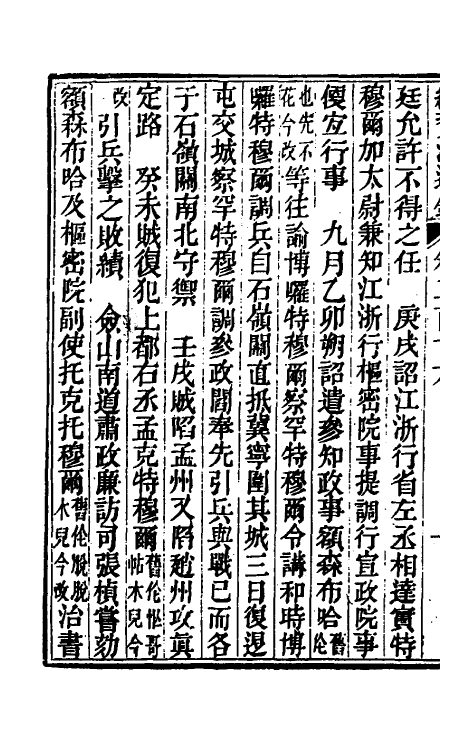 廷允許不得之任　庚戌詔江浙行省左丞相達實特
穆爾加太尉兼知江浙行樞密院事提調行宣政院事
便宜行事　九月乙卯朔詔遣參知政事額森布哈舊倫
也先不花今改等往諭博囉特穆爾察罕特穆爾令講和時博
囉特穆爾調兵自石嶺關直抵冀寧圍其城三日復退
屯交城察罕特穆爾調參政閻奉先引兵與戰已而各
于石嶺關南北守禦　壬戌賊陷孟州又陷趙州攻眞
定路　癸未賊復犯上都右丞孟克特穆爾舊倫忙哥帖木兒今
改引兵擊之敗績　僉山南道肅政廉訪司張楨嘗劾
額森布哈及樞密院副使托克托穆爾舊倫脫脫木兒今改治書